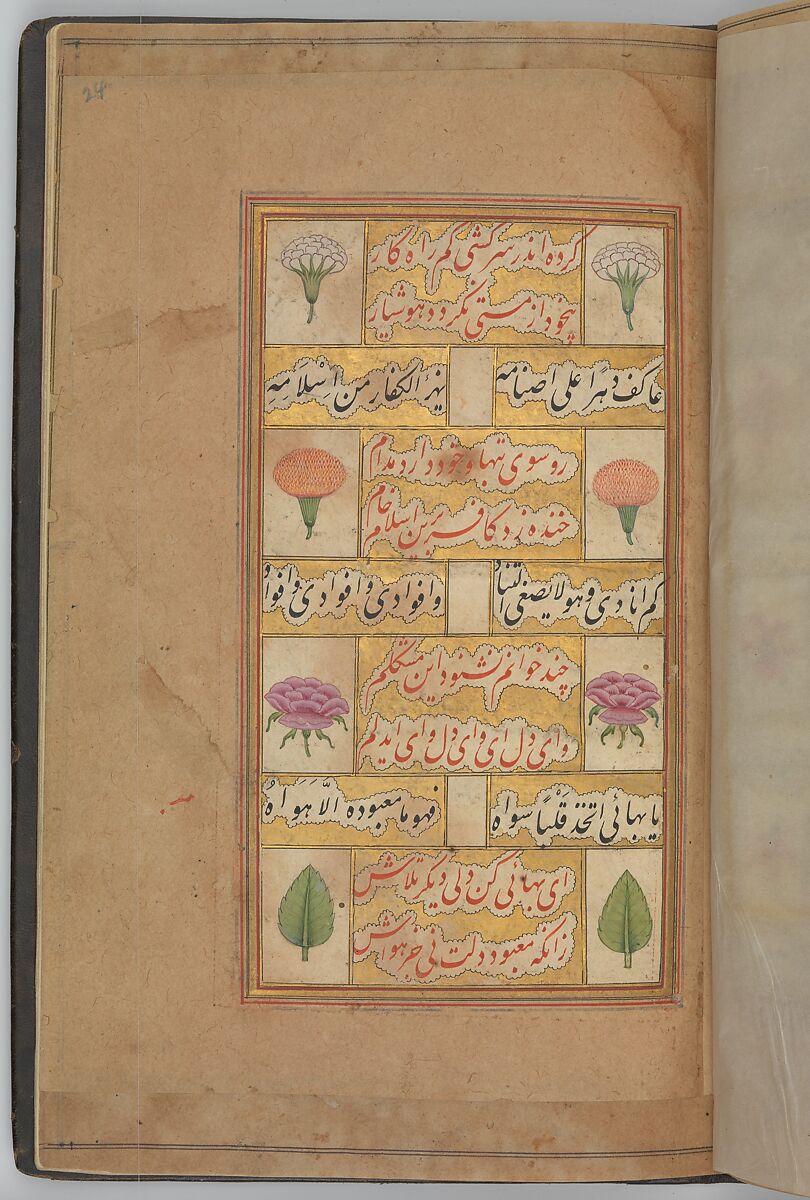 24
کرده اندر سرکشی گم راه کار
بیخود از مستی نگردد هوشیار
عاکف دهرا علی اصنامه ینهز الکفار من اسلامه
رو سوی تنها و خود دارد مدام
خنده زد کافر برین اسلام خام
کم انادی وهو لا یصغی التناد وافوادی وافوادی وافواد
چند خوانم نشنود این مشکلم
وای دل ای وای دل وای ایدلم
یا بهائی اتخذ قلبا سواه فهو ما معبوده الا هواه
ای بهائی کن دلی دیگر تلاش
زانکه معبود دلت نی جز هواش